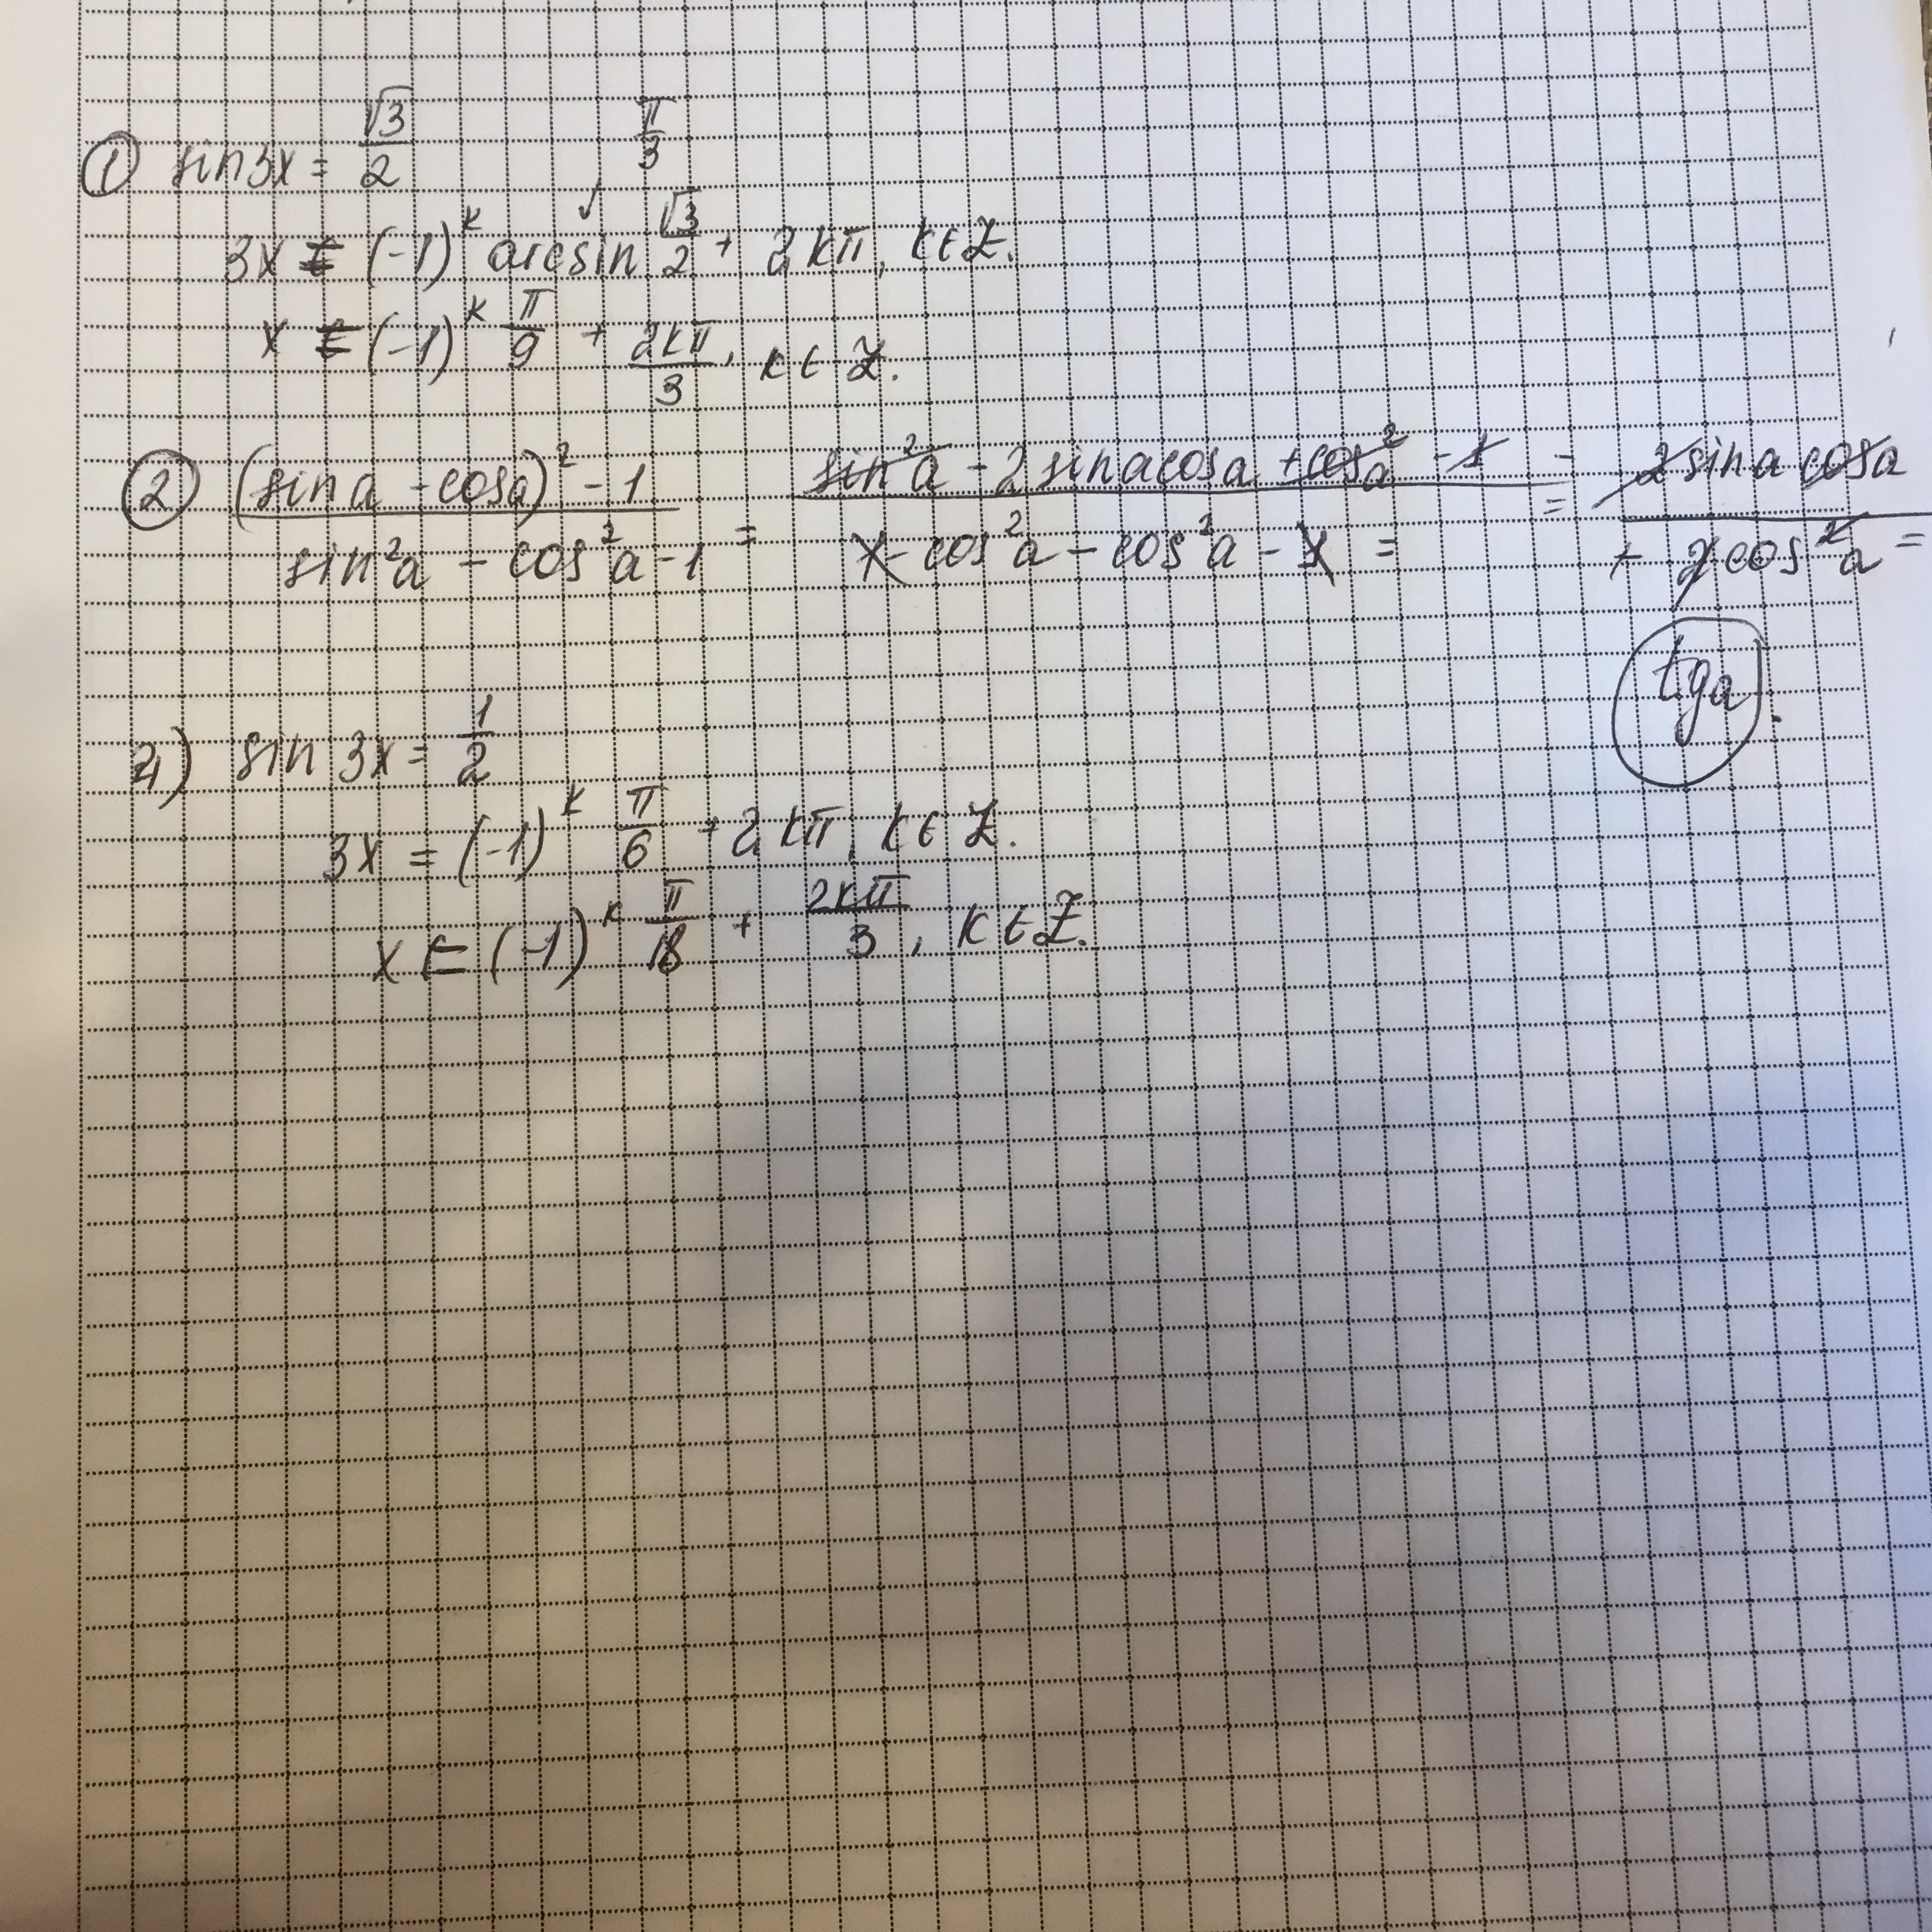 ① sin3x = √3/2
π/3
3x = (-1)^k arcsin √3/2 + 2kπ, k∈Z.
x = (-1)^k π/9 + 2kπ/3, k∈Z.
② (sina - cosa)² - 1 / sin²a - cos²a - 1 = sin²a - 2sinacosa + cos²a - 1 / 1 - cos²a - cos²a - 1 = = - 2sina cosa / + 2cos²a =
tga.
4) sin 3x = 1/2
3x = (-1)^k π/6 + 2kπ, k∈Z.
x = (-1)^k π/18 + 2kπ/3, k∈Z.